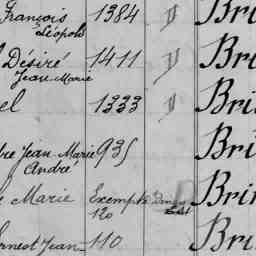 François 1384 Bri
Léopold
Désiré 1411 Bri
Jean Marie
el 1333 Bri
re Jean Marie 935 Bri
André
Marie Exempté Bri
120
Ernest Jean 110 Bri